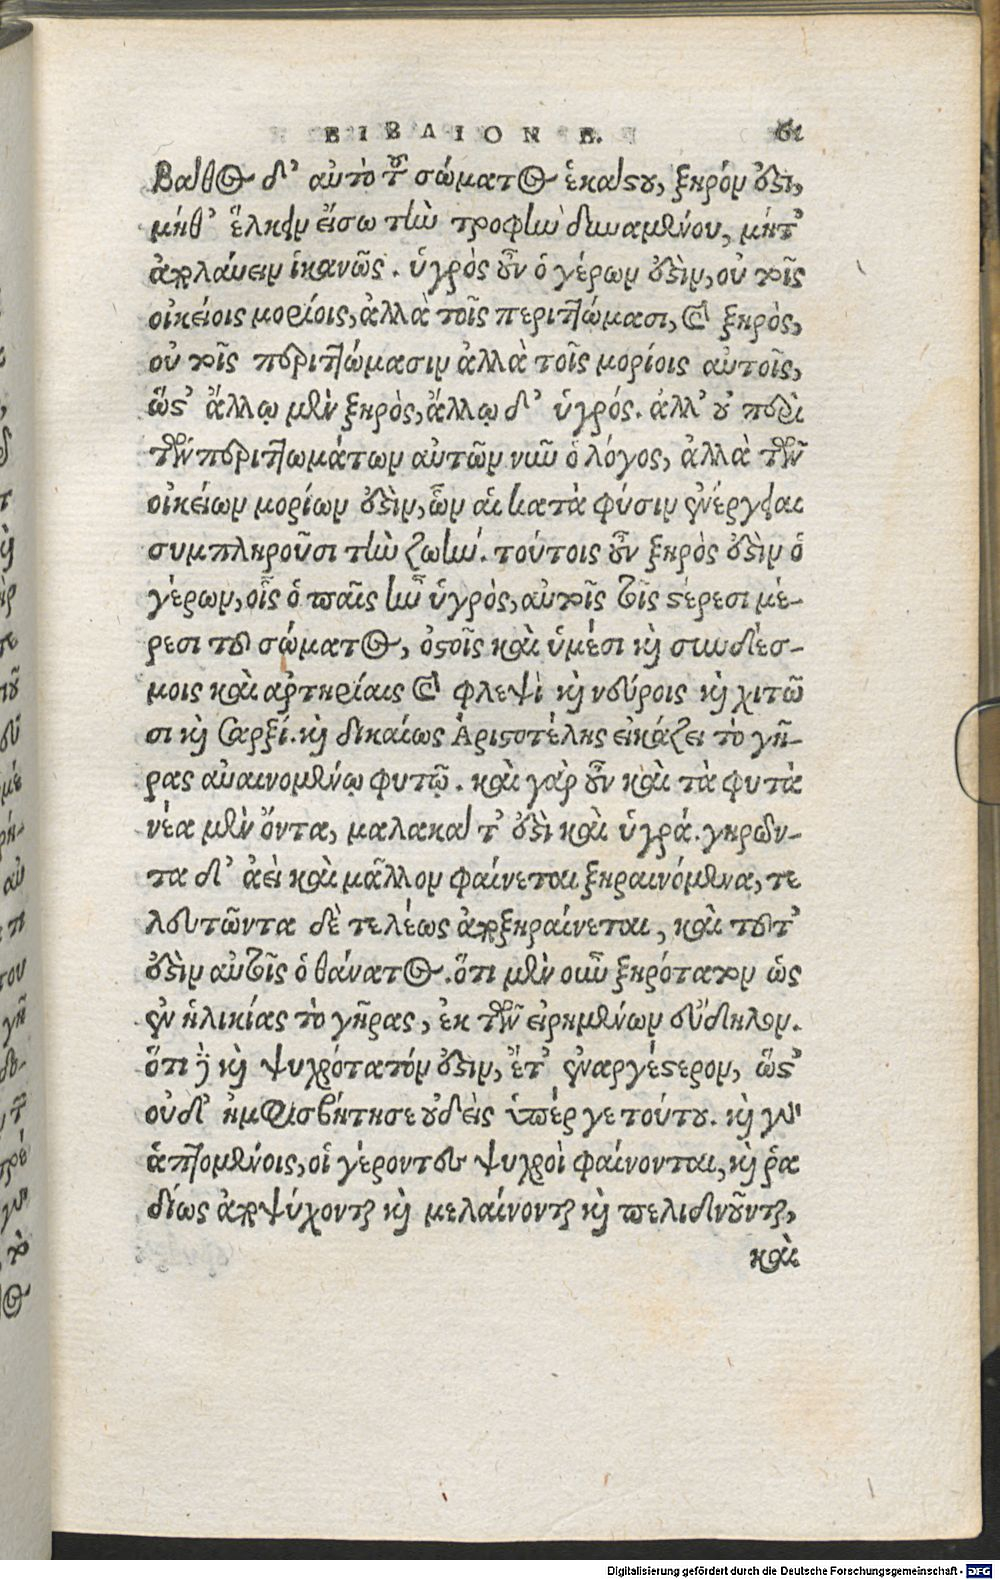 ΒΙΒΛΙΟΝ Β. 61
βάθος δ' αὐτὸ τοῦ σώματος ἑκάστου, ξηρόν ἐστι,
μήθ' ἕλκειν εἴσω τὴν τροφὴν δυναμένου, μήτ'
ἀπολάυειν ἱκανῶς. ὑγρὸς οὖν ὁ γέρων ἐστὶν, οὐ τοῖς
οἰκείοις μορίοις, ἀλλὰ τοῖς περιττώμασι, καὶ ξηρὸς,
οὐ τοῖς περιττώμασιν ἀλλὰ τοῖς μορίοις αὐτοῖς,
ὥστ' ἄλλῳ μὲν ξηρὸς, ἄλλῳ δ' ὑγρός. ἀλλ' οὐ περὶ
τῶν περιττωμάτων αὐτῶν νῦν ὁ λόγος, ἀλλὰ τῶν
οἰκείων μορίων ἐστὶν, ὧν αἱ κατὰ φύσιν ἐνέργειαι
συμπληροῦσι τὴν ζωήν. τούτοις οὖν ξηρὸς ἐστὶν ὁ
γέρων, οἷς ὁ παῖς ἦν ὑγρὸς, αὐτοῖς τοῖς στέρεσι μέ-
ρεσι τοῦ σώματος, ὀστοῖς καὶ ὑμέσι καὶ συνδέσ-
μοις καὶ ἀρτηρίαις καὶ φλεψὶ καὶ νεύροις καὶ χιτῶ
σι καὶ σαρξί. καὶ δικαίως Ἀριστοτέλης εἰκάζει τὸ γῆ-
ρας αὐαινομένῳ φυτῷ. καὶ γὰρ οὖν καὶ τὰ φυτὰ
νέα μὲν ὄντα, μαλακά τ' ἐστὶ καὶ ὑγρά. γηρῶν-
τα δ' ἀεὶ καὶ μᾶλλον φαίνεται ξηραινόμενα, τε
λευτῶντα δὲ τελέως ἀποξηραίνεται, καὶ τοῦτ'
ἐστὶν αὐτοῖς ὁ θάνατος. ὅτι μὲν οὖν ξηρότατον ὡς
ἐν ἡλικίας τὸ γῆρας, ἐκ τῶν εἰρημένων εὔδηλον.
ὅτι δὲ καὶ ψυχρότατόν ἐστιν, ἔτ' ἐναργέστερον, ὥστ'
οὐδ' ἠμφισβήτησε οὐδεὶς ὑπέρ γε τούτου. καὶ γὰρ
ἁπτομένοις, οἱ γέροντες ψυχροὶ φαίνονται, καὶ ῥα
δίως ἀποψύχονται καὶ μελαίνονται καὶ πελιδνοῦνται,
καὶ
Digitalisierung gefördert durch die Deutsche Forschungsgemeinschaft - DFG